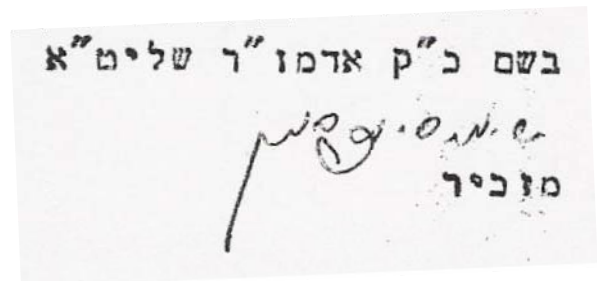 בשם כ"ק אדמו"ר שליט"א
מזכיר